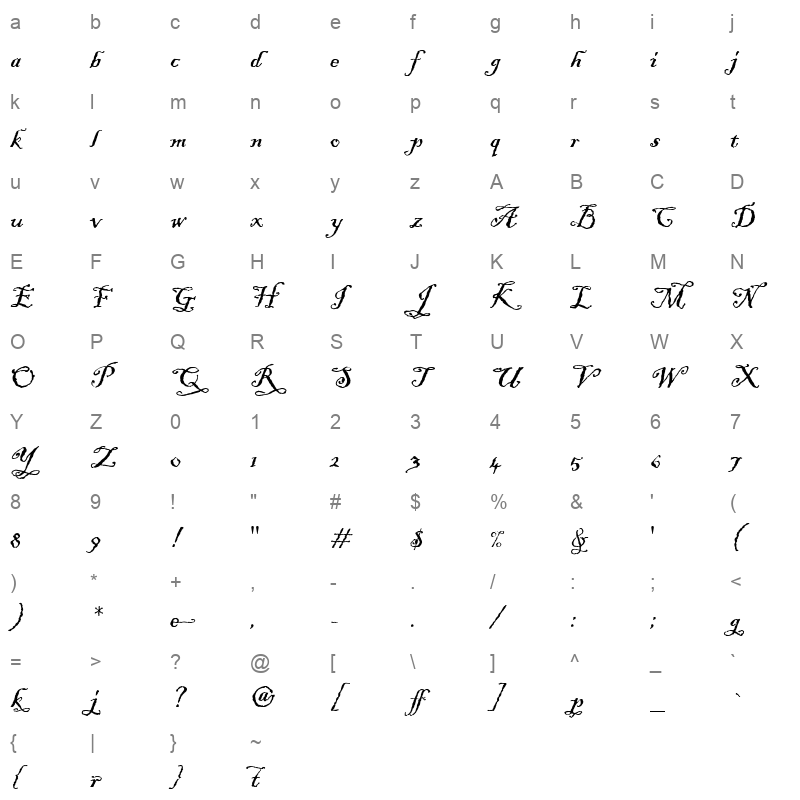 a b c d e f g h i j
a b c d e f g h i j
k l m n o p q r s t
k l m n o p q r s t
u v w x y z A B C D
u v w x y z A B C D
E F G H I J K L M N
E F G H I J K L M N
O P Q R S T U V W X
O P Q R S T U V W X
Y Z 0 1 2 3 4 5 6 7
Y Z 0 1 2 3 4 5 6 7
8 9 ! " # $ % & ' (
8 9 ! " # $ % & ' (
) * + , - . / : ; <
) * e , - . / : ; g
= > ? @ [ \ ] ^ _ `
k j ? @ [ ff ] p _ `
{ | } ~
{ r } t